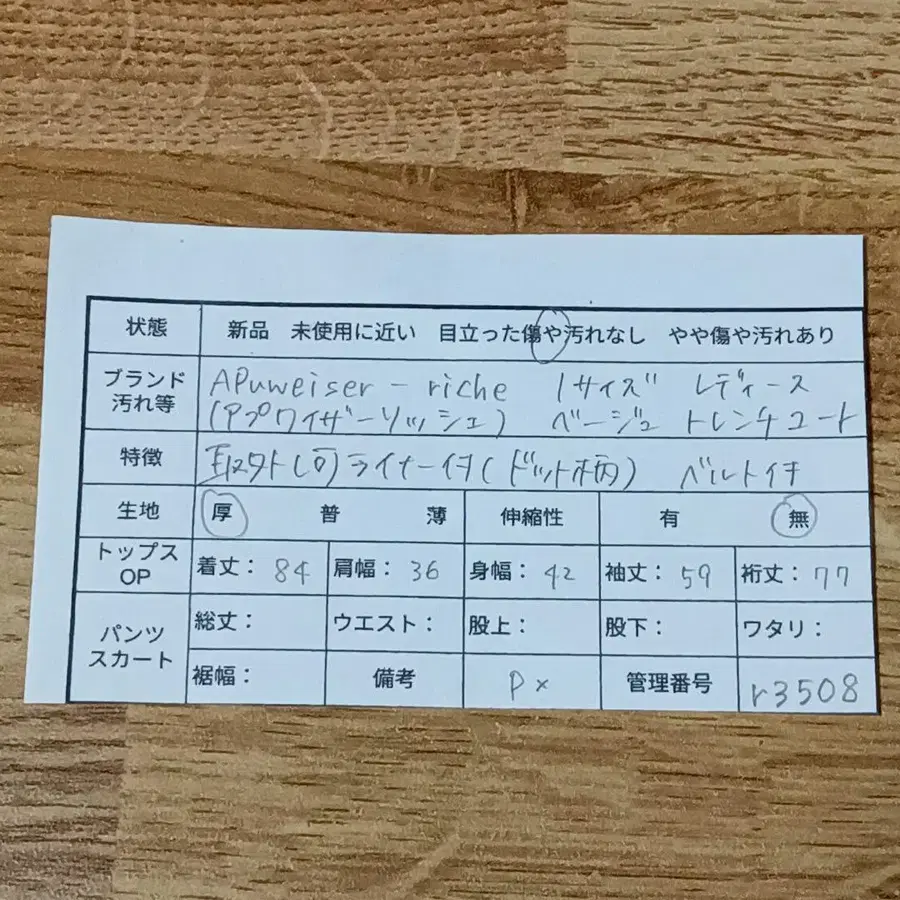 状態 新品 未使用に近い 目立った傷や汚れなし やや傷や汚れあり
ブランド 汚れ等 APuweiser-riche 1サイズ レディース
(アプワイザーリッシェ) ベージュ トレンチコート
特徴 取外し可ライナー付(ドット柄) ベルト付き
生地 厚 普 薄 伸縮性 有 無
トップス OP 着丈: 84 肩幅: 36 身幅: 42 袖丈: 59 裄丈: 77
パンツ スカート 総丈: ウエスト: 股上: 股下: ワタリ:
裾幅: 備考 P× 管理番号 r3508